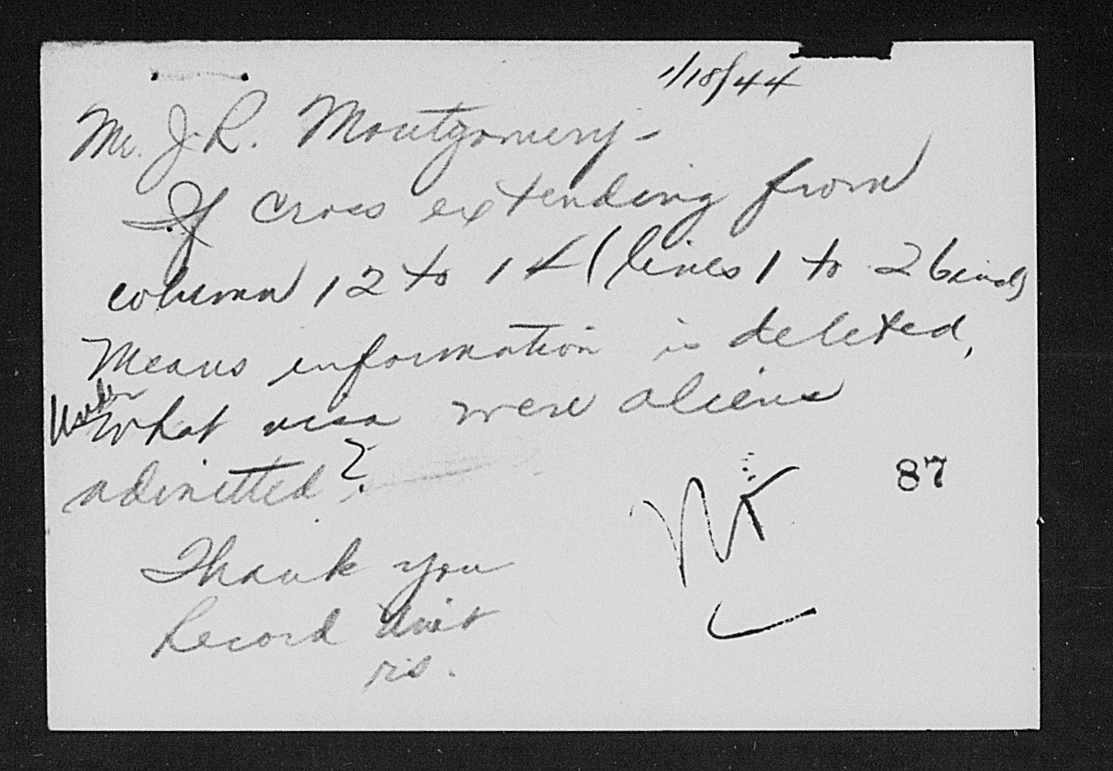 1/18/44
Mr. J.R. Montgomery -
If cross extending from
column 12 to 14 (lines 1 to 26 incl)
Means information is deleted,
Under what visa were aliens
admitted?
87
Thank you
Record Unit